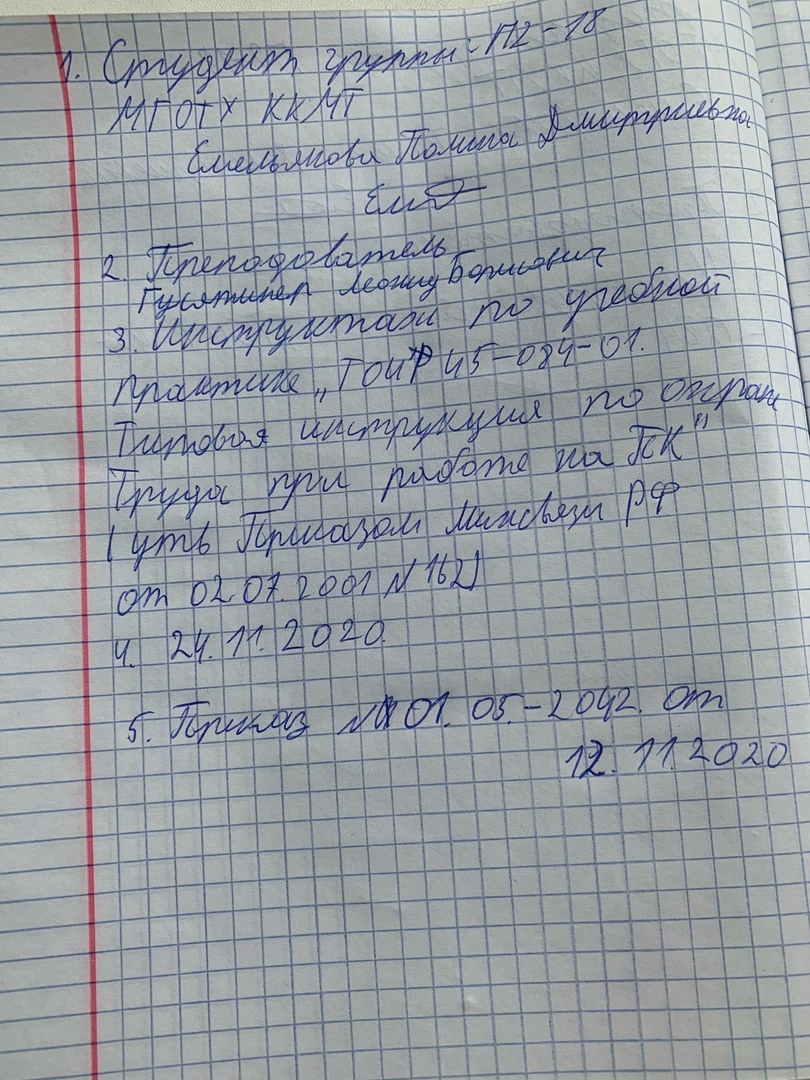 1. Студент группы: П2-18
МГОТУ ККМТ
Емельянова Полина Дмитриевна
Ем
2. Преподователь
Гусятинер Леонид Борисович
3. Инструктаж по учебной
практике „ТОИ Р 45-084-01.
Типовая инструкция по охране
Труда при работе на ПК"
(утв Приказом Минсвязи РФ
от 02.07.2001 N 162)
4. 24.11.2020.
5. Приказ N 01.05.-2042. от
12.11.2020